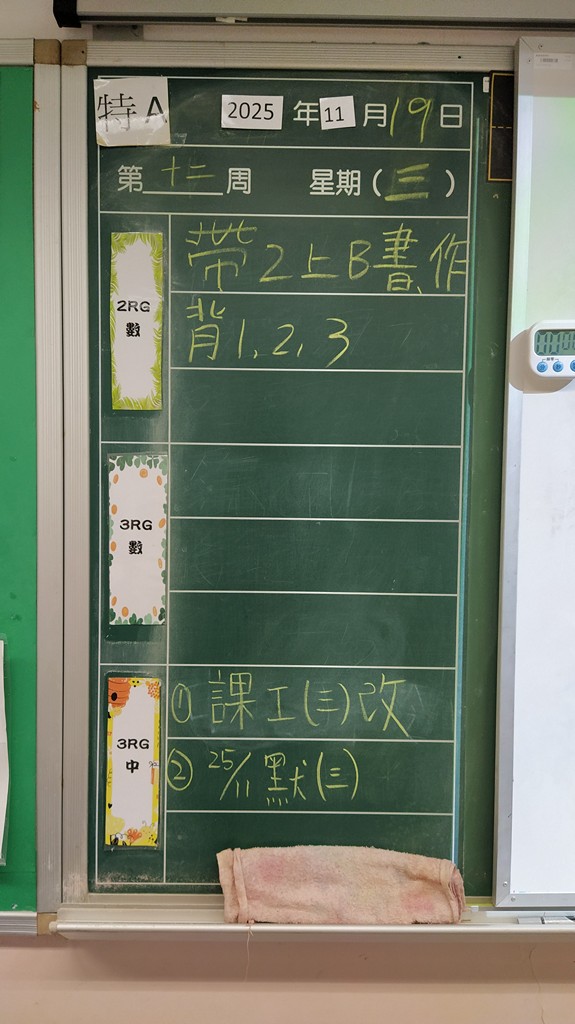 特A
2025 年 11 月 19 日
第 十二 周 星期 ( 三 )
2RG 數
帶2上B書,作
背1, 2, 3
3RG 數
3RG 中
① 課工(三)改
② 25/11 默(三)